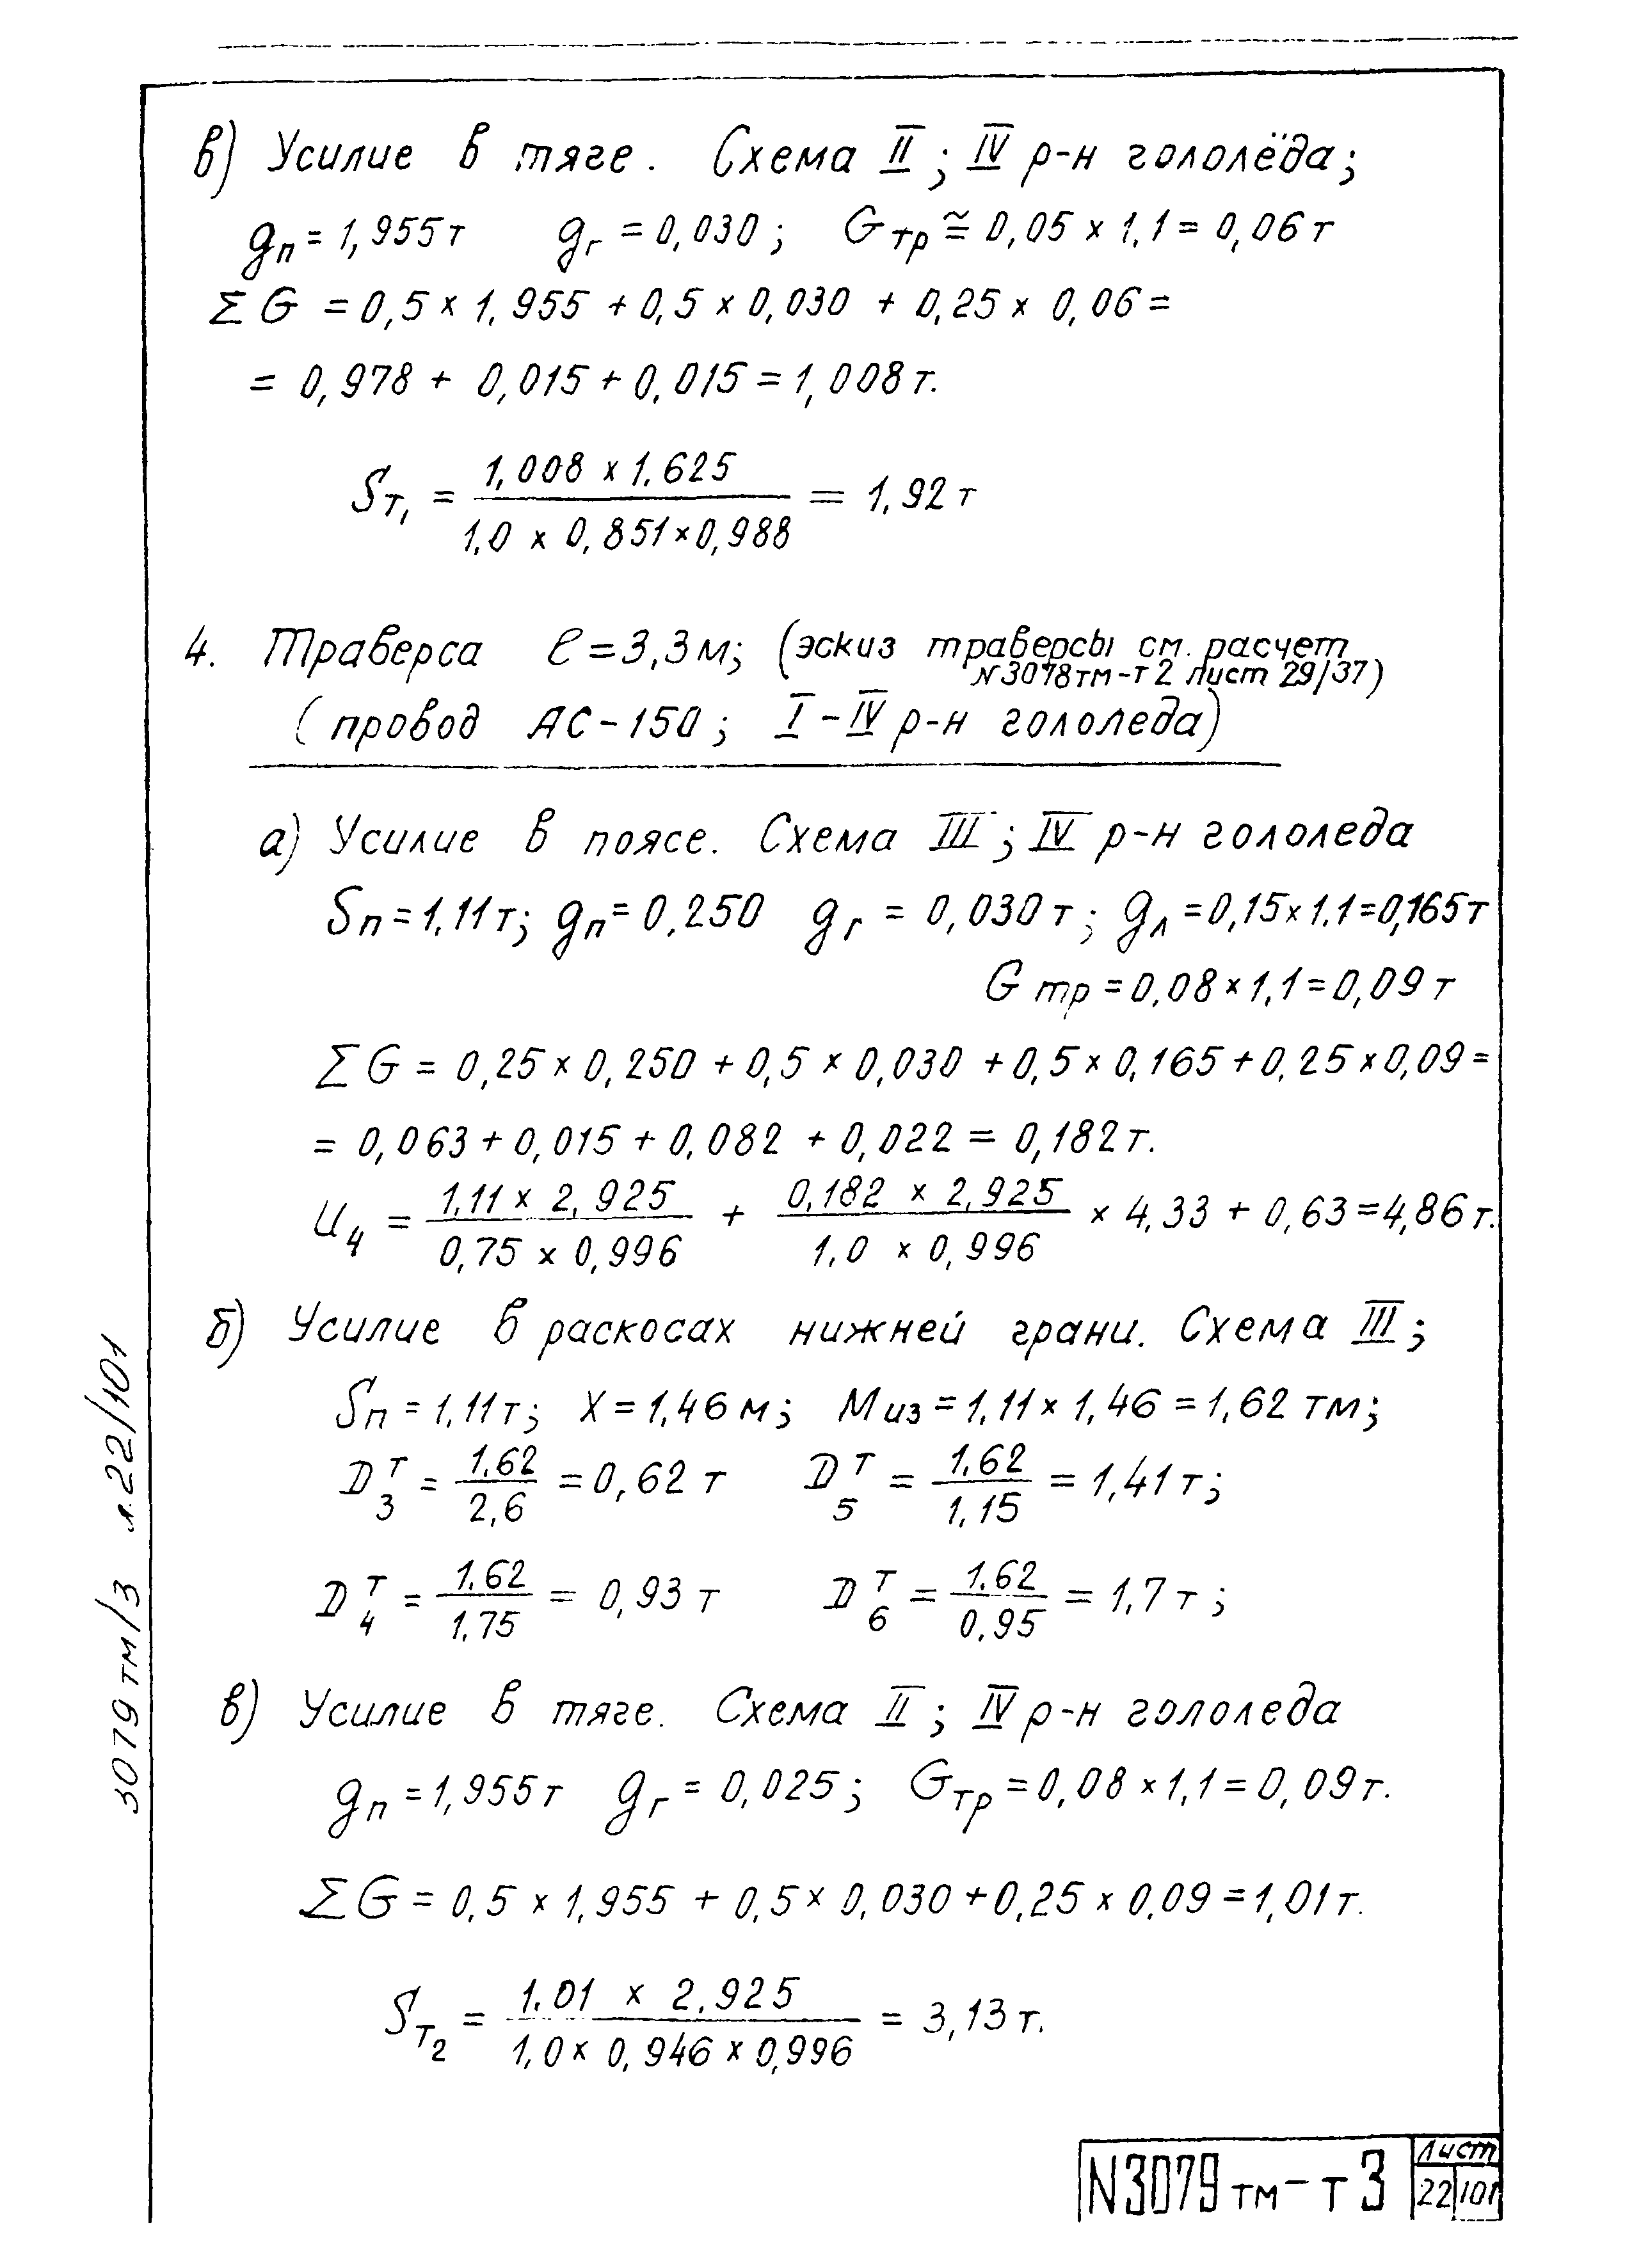 в) Усилие в тяге. Схема II; IV р-н гололёда;
gп = 1,955т gг = 0,030; Gтр ≅ 0,05 × 1,1 = 0,06 т
ΣG = 0,5 × 1,955 + 0,5 × 0,030 + 0,25 × 0,06 =
= 0,978 + 0,015 + 0,015 = 1,008 т.
Sт₁ = (1,008 × 1,625) / (1,0 × 0,851 × 0,988) = 1,92 т
4. Траверса ℓ = 3,3м; (эскиз траверсы см. расчет
N3078тм-т2 лист 29/37)
(провод АС-150; I-IV р-н гололеда)
а) Усилие в поясе. Схема III; IV р-н гололеда
Sп = 1,11т; gп = 0,250 gг = 0,030 т; gл = 0,15×1,1 = 0,165т
Gтр = 0,08 × 1,1 = 0,09 т
ΣG = 0,25 × 0,250 + 0,5 × 0,030 + 0,5 × 0,165 + 0,25 × 0,09 =
= 0,063 + 0,015 + 0,082 + 0,022 = 0,182 т.
U₄ = (1,11 × 2,925) / (0,75 × 0,996) + (0,182 × 2,925) / (1,0 × 0,996) × 4,33 + 0,63 = 4,86 т.
б) Усилие в раскосах нижней грани. Схема III;
Sп = 1,11т; X = 1,46 м; Mиз = 1,11 × 1,46 = 1,62 тм;
D₃ᵀ = 1,62 / 2,6 = 0,62 т D₅ᵀ = 1,62 / 1,15 = 1,41 т;
D₄ᵀ = 1,62 / 1,75 = 0,93 т D₆ᵀ = 1,62 / 0,95 = 1,7 т;
в) Усилие в тяге. Схема II; IV р-н гололеда
gп = 1,955т gг = 0,025; Gтр = 0,08 × 1,1 = 0,09 т.
ΣG = 0,5 × 1,955 + 0,5 × 0,030 + 0,25 × 0,09 = 1,01 т.
Sт₂ = (1,01 × 2,925) / (1,0 × 0,946 × 0,996) = 3,13 т.
3079 тм/3 л.22/101
N3079тм-т3
Лист
22 101